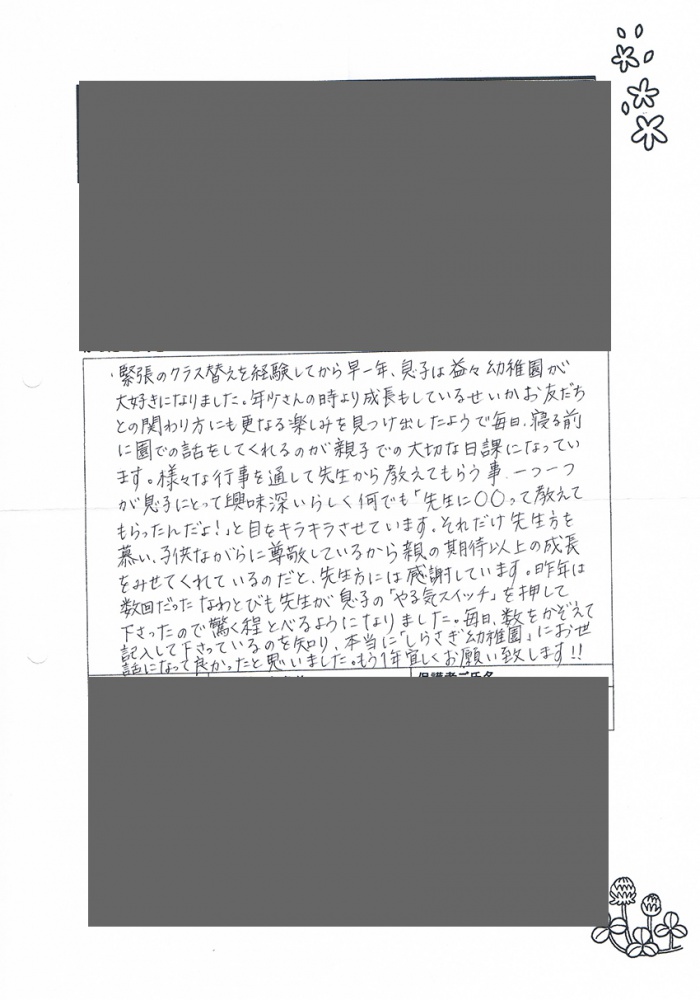 緊張のクラス替えを経験してから早一年、息子は益々幼稚園が
大好きになりました。年少さんの時より成長もしているせいかお友だち
との関わり方にも更なる楽しみを見つけ出したようで毎日、寝る前
に園での話をしてくれるのが親子での大切な日課になってい
ます。様々な行事を通して先生から教えてもらう事、一つ一つ
が息子にとって興味深いらしく何でも「先生に〇〇って教えて
もらったんだよ!」と目をキラキラさせています。それだけ先生方を
慕い、子供ながらに尊敬しているから親の期待以上の成長
をみせてくれているのだと、先生方には感謝しています。昨年は
数回だったなわとびも先生が息子の「やる気スイッチ」を押して
下さったので驚く程とべるようになりました。毎日、数をかぞえて
記入して下さっているのを知り、本当に「しらさぎ幼稚園」にお世
話になって良かったと思いました。もう1年宜しくお願い致します!!
保護者ご氏名